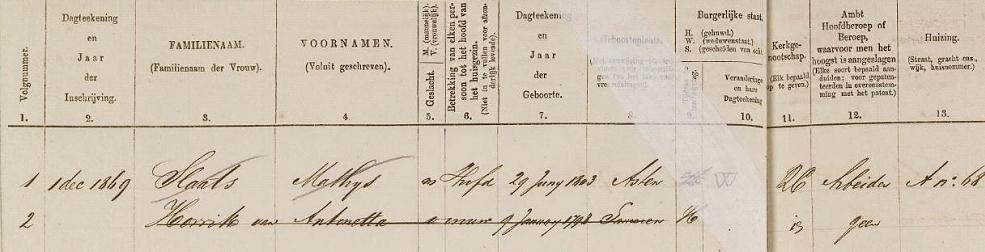 Volgnummer.
Dagteekening en Jaar der Inschrijving.
FAMILIENAAM.
(Familienaam der Vrouw).
VOORNAMEN.
(Voluit geschreven).
Geslacht. M. (mannelijk). V. (vrouwelijk).
Betrekking van elken persoon tot het hoofd van het huisgezin. (Niet in te vullen voor afzonderlijk levende).
Dagteekening en Jaar der Geboorte.
Geboorteplaats.
Burgerlijke staat.
H. (gehuwd.)
W. (weduwenstaat.)
S. (gescheiden van echt
Veranderingen en hare Dagteekening
Kerkgenootschap.
(Elk bepaald op te geven.)
Ambt Hoofdberoep of Beroep, waarvoor men het hoogst is aangeslagen
(Elke soort bepaald aanduiden; voor gepatenteerden in overeenstemming met het patent.)
Huizing.
(Straat, gracht enz., wijk, huisnommer.)
1. 2. 3. 4. 5. 6. 7. 8. 9. 10. 11. 12. 13.
1 1 dec 1869 Slaats Mathys m Hoofd 29 Juny 1803 Asten W RC Arbeider A no: 68
2 van Antonetta vrouw 9 Someren H geen